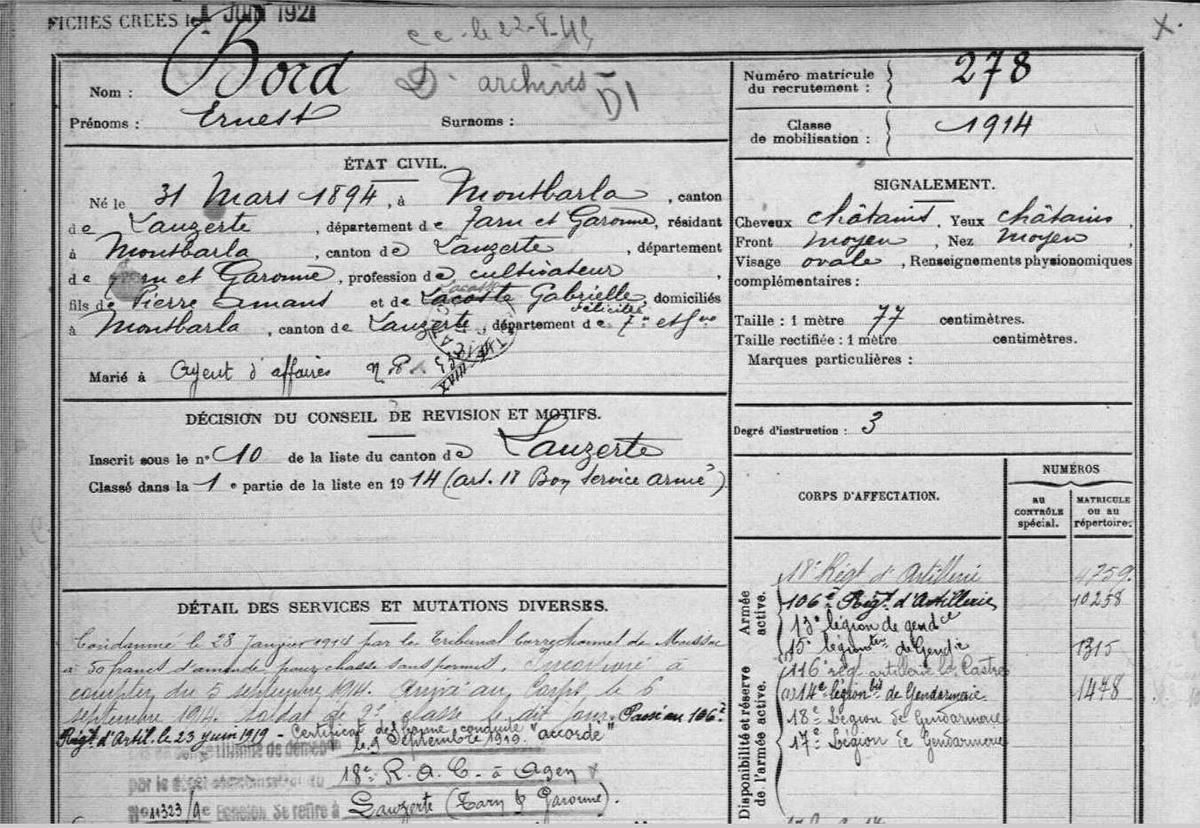 FICHES CREES LE 1 JUIN 1921
cc. le 22-8-45
X.
Nom : Bord
D archives D1
Prénoms : Ernest Surnoms :
Numéro matricule du recrutement : 278
Classe de mobilisation : 1914
ÉTAT CIVIL.
Né le 31 Mars 1894, à Montbarla, canton
de Lauzerte, département de Tarn et Garonne, résidant
à Montbarla, canton de Lauzerte, département
de Tarn et Garonne, profession de cultivateur,
fils de Pierre Amans et de Lacoste Gabrielle, domiciliés
Lacoste
Félicités
à Montbarla, canton de Lauzerte, département de Tn et Gne
Marié à Agent d'affaires
SIGNALEMENT.
Cheveux châtains, Yeux châtains,
Front moyen, Nez moyen,
Visage ovale, Renseignements physionomiques
complémentaires :
Taille : 1 mètre 77 centimètres.
Taille rectifiée : 1 mètre centimètres.
Marques particulières :
Degré d'instruction : 3
DÉCISION DU CONSEIL DE REVISION ET MOTIFS.
Inscrit sous le n° 10 de la liste du canton de Lauzerte
Classé dans la 1e partie de la liste en 1914 (art. 18 Bon service armé)
DÉTAIL DES SERVICES ET MUTATIONS DIVERSES.
Condamné le 28 Janvier 1914 par le Tribunal Correctionnel de Moissac
à 50 francs d'amende pour chasse sans permis. Incorporé à
compter du 5 septembre 1914. Arrivé au Corps le 6
septembre 1914. soldat de 2e classe le dit jour. Passé au 106e
Régt. d'Artil. le 23 juin 1919 - Certificat de bonne conduite "accordé"
le 9 Septembre 1919.
18e R.A.C. à Agen
No 11323/9e Echelon. Se retire à Lauzerte (Tarn & Garonne).
CORPS D'AFFECTATION.
NUMÉROS
AU CONTRÔLE spécial.
MATRICULE OU AU répertoire.
Armée active.
18e Régt d'Artillerie 4759.
106e Régt. d'Artillerie 10258
13e légion de gendie
15e légion ter de Gendie 1315
Disponibilité et réserve de l'armée active.
116e rég. artillerie Castres
14e légion bis de Gendarmerie 1478
18e Légion de Gendarmerie
17e Légion de Gendarmerie